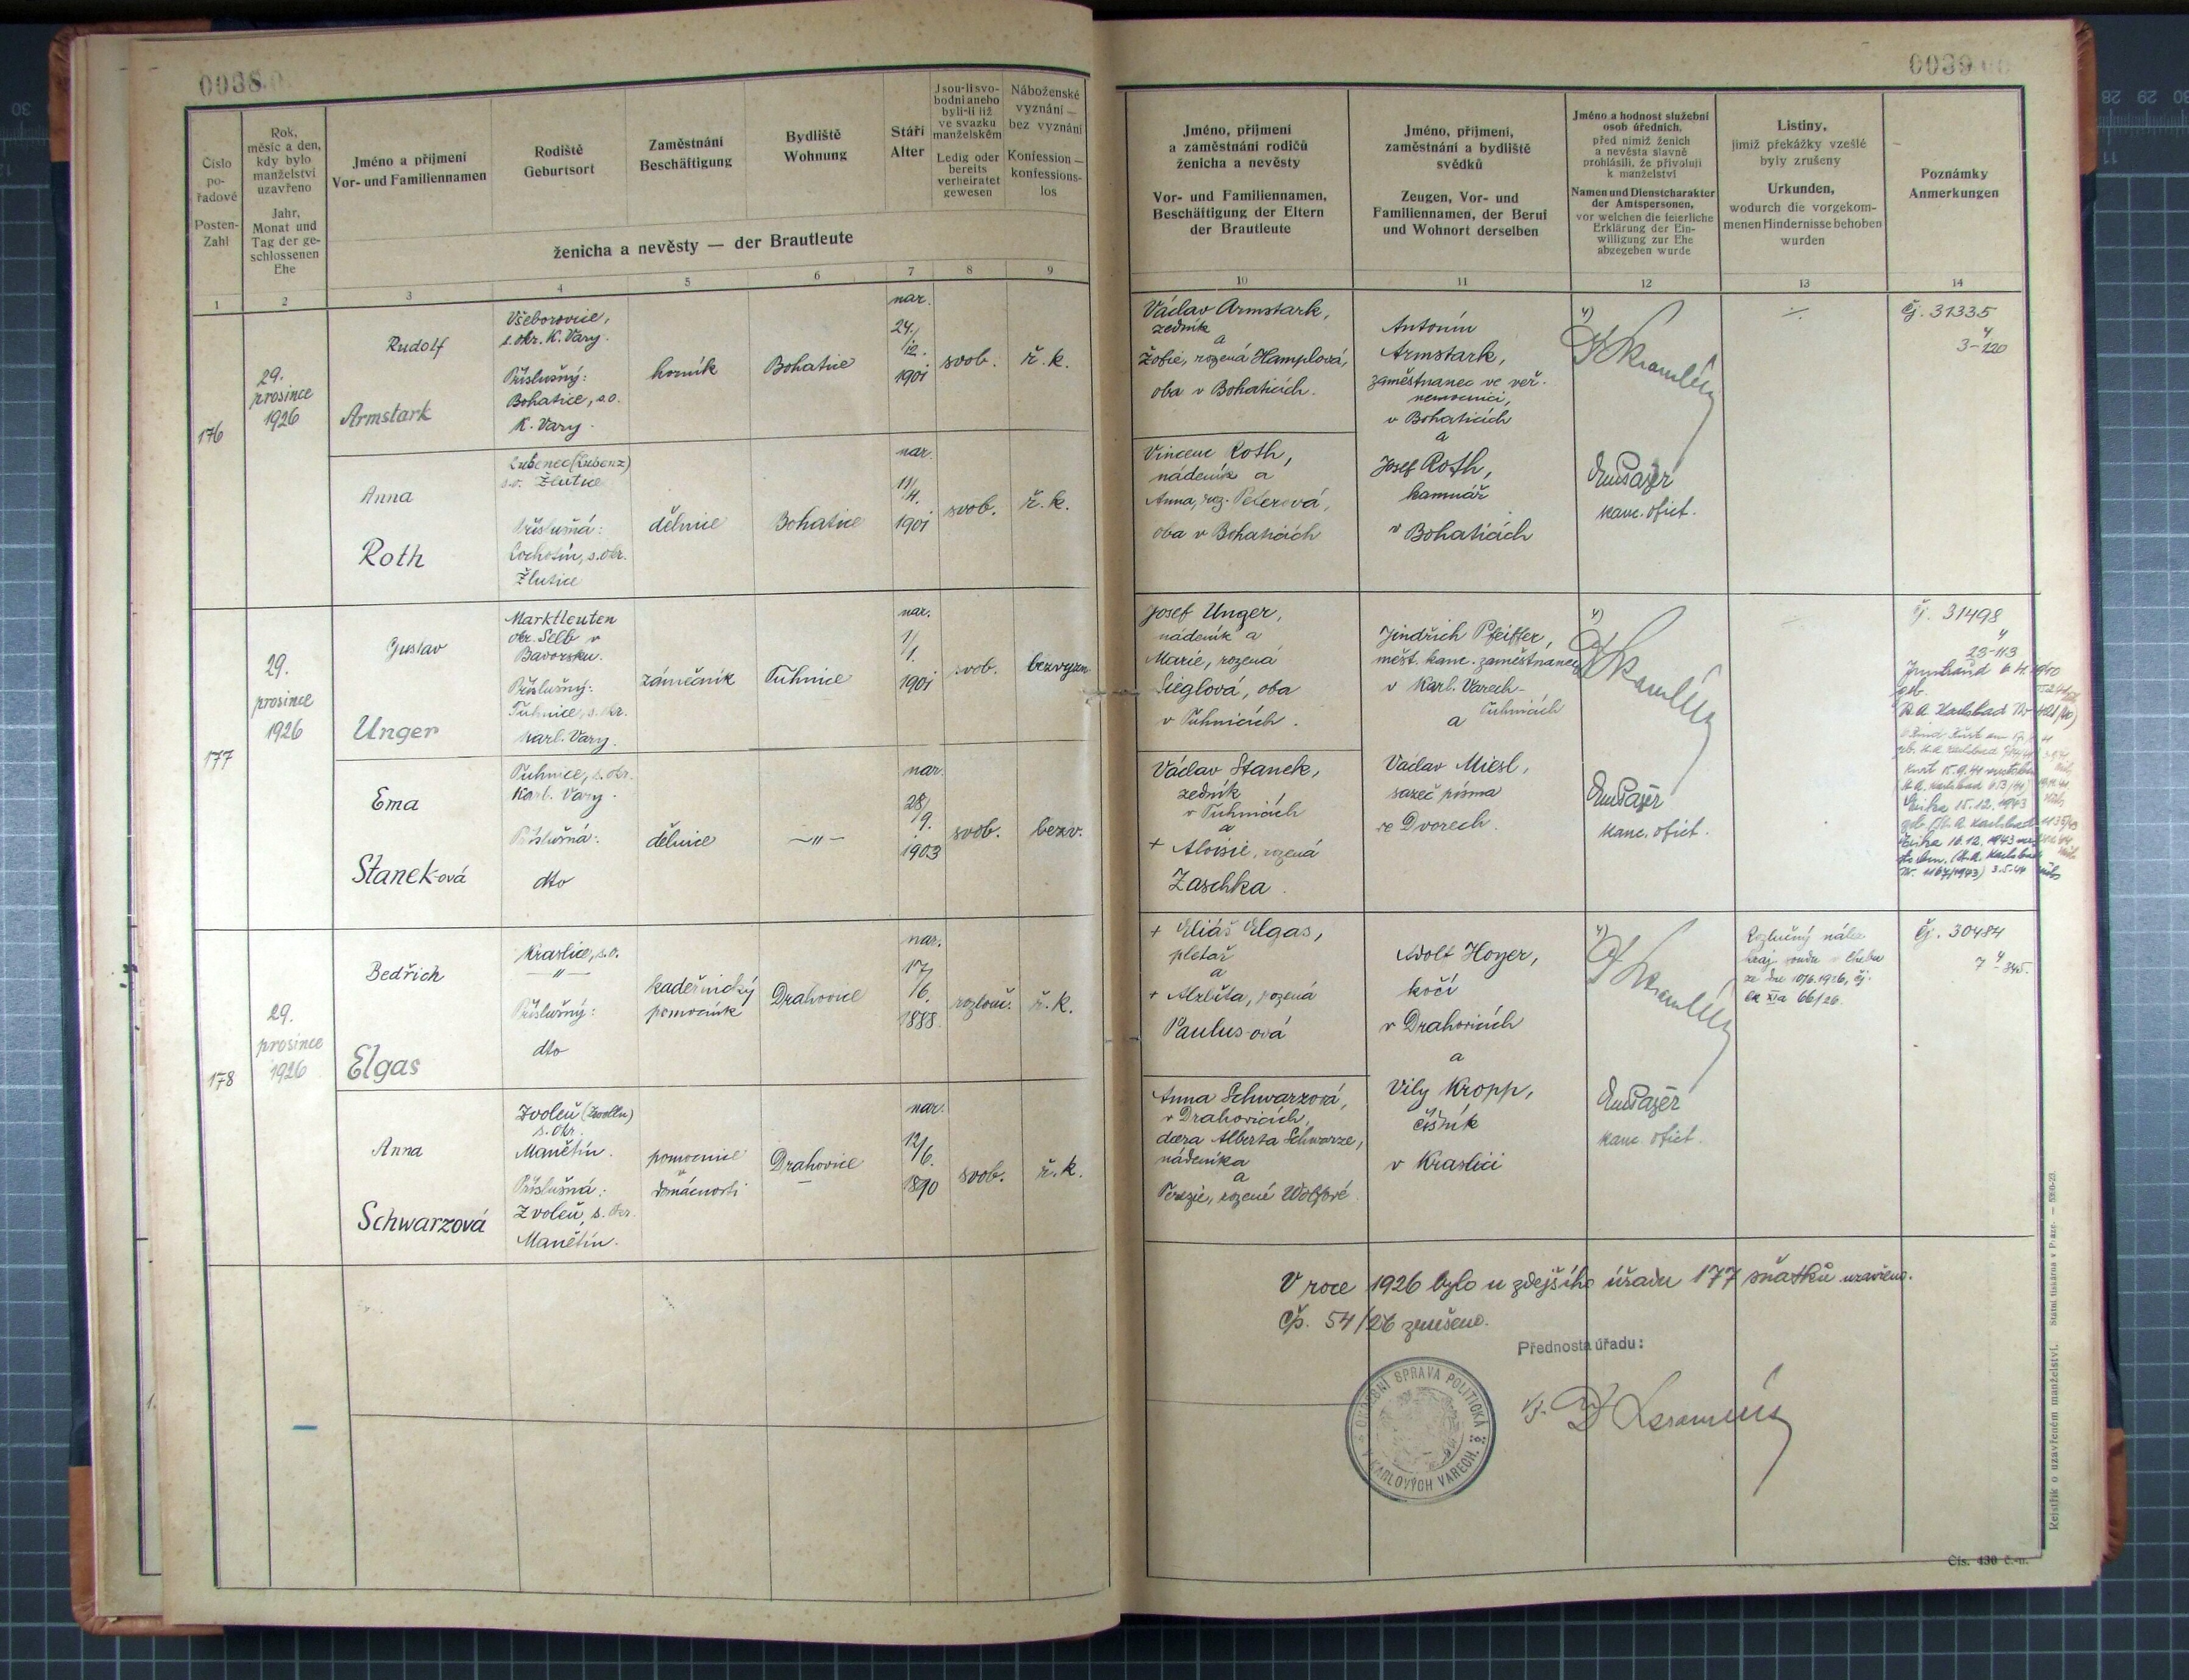 0038
Číslo pořadové
Posten-Zahl
Rok, měsíc a den, kdy bylo manželství uzavřeno
Jahr, Monat und Tag der geschlossenen Ehe
Jméno a příjmení
Vor- und Familiennamen
Rodiště
Geburtsort
Zaměstnání
Beschäftigung
Bydliště
Wohnung
Stáří
Alter
Jsou-li svobodni aneb byli-li již ve svazku manželském
Ledig oder bereits verheiratet gewesen
Náboženské vyznání — bez vyznání
Konfession — konfessionslos
ženicha a nevěsty — der Brautleute
1 2 3 4 5 6 7 8 9
176
29.
prosince
1926
Rudolf
Armstark
Všeborovice,
s.okr. K. Vary.
Příslušný:
Bohatice, s.o.
K. Vary.
horník
Bohatice
nar.
24./
12.
1901
svob.
ř. k.
Anna
Roth
Lubenec (Lubenz)
s.o. Žlutice
Příslušná:
Lochotín, s.okr.
Žlutice
dělnice
Bohatice
nar.
11/
4.
1901
svob.
ř. k.
177
29.
prosince
1926
Gustav
Unger
Marktleuten
okr. Selb v
Bavorsku.
Příslušný:
Tuhnice, s.okr.
Karl. Vary.
zámečník
Tuhnice
nar.
1/
1.
1901
svob.
bezvyzn
Ema
Stanek-ová
Tuhnice, s.okr.
Karl. Vary.
Příslušná:
dto
dělnice
—"—
nar.
28/
9.
1903
svob.
bezv.
178
29.
prosince
1926
Bedřich
Elgas
Kraslice, s.o.
—"—
Příslušný:
dto
kadeřnický
pomocník
Drahovice
nar.
17/
6.
1888
rozlouč.
ř. k.
Anna
Schwarzová
Zvoleň (Zwolln)
s. okr.
Manětín.
Příslušná:
Zvoleň, s. okr.
Manětín.
pomocnice
v
domácnosti
Drahovice
nar.
12/
6.
1890
svob.
ř. k.
0039
Jméno, příjmení a zaměstnání rodičů ženicha a nevěsty
Vor- und Familiennamen, Beschäftigung der Eltern der Brautleute
Jméno, příjmení, zaměstnání a bydliště svědků
Zeugen, Vor- und Familiennamen, der Beruf und Wohnort derselben
Jméno a hodnost služební osob úředních, před nimiž ženich a nevěsta slavně prohlásili, že přivolují k manželství
Namen und Dienstcharakter der Amtspersonen, vor welchen die feierliche Erklärung der Einwilligung zur Ehe abgegeben wurde
Listiny, jimiž překážky vzešlé byly zrušeny
Urkunden, wodurch die vorgekommenen Hindernisse behoben wurden
Poznámky
Anmerkungen
10 11 12 13 14
Václav Armstark,
zedník
a
Žofie, rozená Hamplová,
oba v Bohaticích.
Antonín
Armstark,
zaměstnanec ve veř.
nemocnici,
v Bohaticích
a
Josef Roth,
kamnář
v Bohaticích
kanc. ofict.
Čj. 31335
4
3-120
Vincenc Roth,
nádeník a
Anna, roz. Peterová,
oba v Bohaticích
Josef Unger,
nádeník a
Marie, rozená
Sieglová, oba
v Tuhnicích.
Jindřich Pfeiffer,
měst. kanc. zaměstnanec
v Karl. Varech-
Tuhnicích
a
Václav Miesl,
sazeč písma
ve Dvorech.
kanc. ofict.
Čj. 31498
4
23-113
Václav Stanek,
zedník
v Tuhnicích
a
+ Aloisie, rozená
Zaschka.
+ Eliáš Elgas,
pletař
a
+ Alžběta, rozená
Paulus-ová
Adolf Hoyer,
kočí
v Drahovicích
a
Vily Kropp,
číšník
v Kraslici
kanc. ofict.
Rozlučný nález
kraj. soudu v Chebu
ze dne 10/6.1926, čj.
Ck XIa 66/26.
Čj. 30484
4
7-345.
Anna Schwarzová,
v Drahovicích,
dcera Alberta Schwarze,
nádeníka
a
Terezie, rozené Wolfové.
V roce 1926 bylo u zdejšího úřadu 177 sňatků uzavřeno.
Čp. 54/26 zrušeno.
Přednosta úřadu:
OKRESNÍ SPRÁVA POLITICKÁ V KARLOVÝCH VARECH.
Rejstřík o uzavřeném manželství. Státní tiskárna v Praze. — 5380-23.
Čís. 430 č.-n.